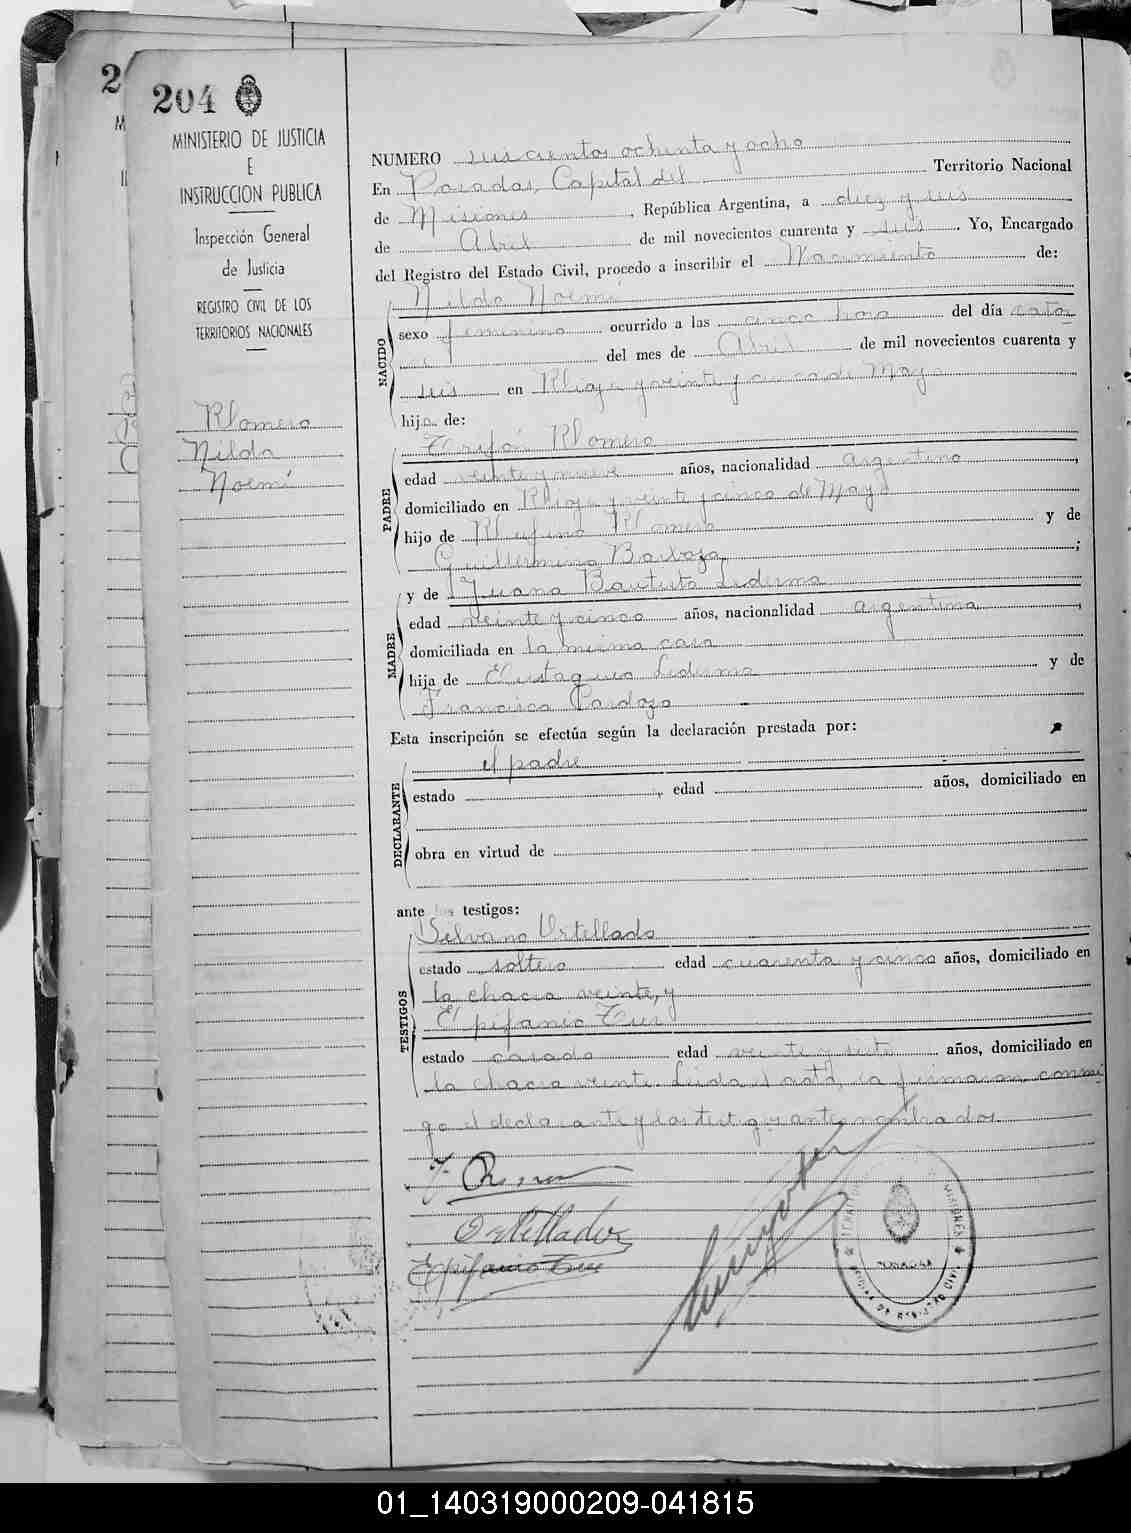 204
MINISTERIO DE JUSTICIA
E
INSTRUCCION PUBLICA
Inspección General
de Justicia
REGISTRO CIVIL DE LOS
TERRITORIOS NACIONALES
Romero
Nilda
Noemí
NUMERO seiscientos ochenta y ocho
En Posadas, Capital del Territorio Nacional
de Misiones, República Argentina, a diez y seis
de Abril de mil novecientos cuarenta y seis. Yo, Encargado
del Registro del Estado Civil, procedo a inscribir el Nacimiento de:
Nilda Noemí
NACIDO
sexo femenino ocurrido a las cinco hora del día cator
ce del mes de Abril de mil novecientos cuarenta y
seis en Rioja y veinte y cinco de Mayo
hija de:
PADRE
Trifón Romero
edad veinte y nueve años, nacionalidad argentino,
domiciliado en Rioja y veinte y cinco de Mayo
hijo de Rufino Romero y de
Guillermina Barboza;
MADRE
y de Juana Bautista Ledesma
edad veinte y cinco años, nacionalidad argentina,
domiciliada en la misma casa
hija de Eustaquio Ledesma y de
Francisca Cardozo
Esta inscripción se efectúa según la declaración prestada por:
DECLARANTE
el padre
estado , edad años, domiciliado en
obra en virtud de
ante los testigos:
TESTIGOS
Silvano Ortellado
estado soltero edad cuarenta y cinco años, domiciliado en
la chacra veinte, y
Epifanio
estado casado edad veinte y siete años, domiciliado en
la chacra veinte. Leida el acta, la firmaron conmi
go el declarante y los testigos antes nombrados
Ortellado
Epifanio
MISIONES
POSADAS
01_140319000209-041815